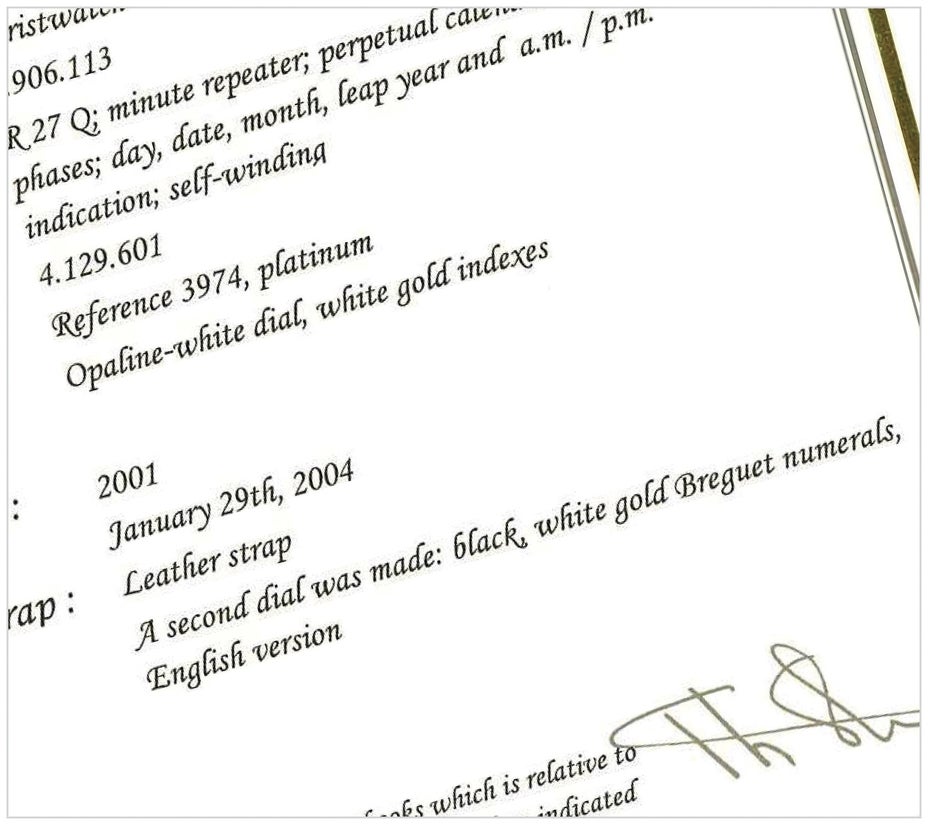 .906.113
R 27 Q; minute repeater; perpetual
phases; day, date, month, leap year and a.m. / p.m.
indication; self-winding
4.129.601
Reference 3974, platinum
Opaline-white dial, white gold indexes
: 2001
January 29th, 2004
rap : Leather strap
A second dial was made: black, white gold Breguet numerals,
English version
which is relative to
indicated